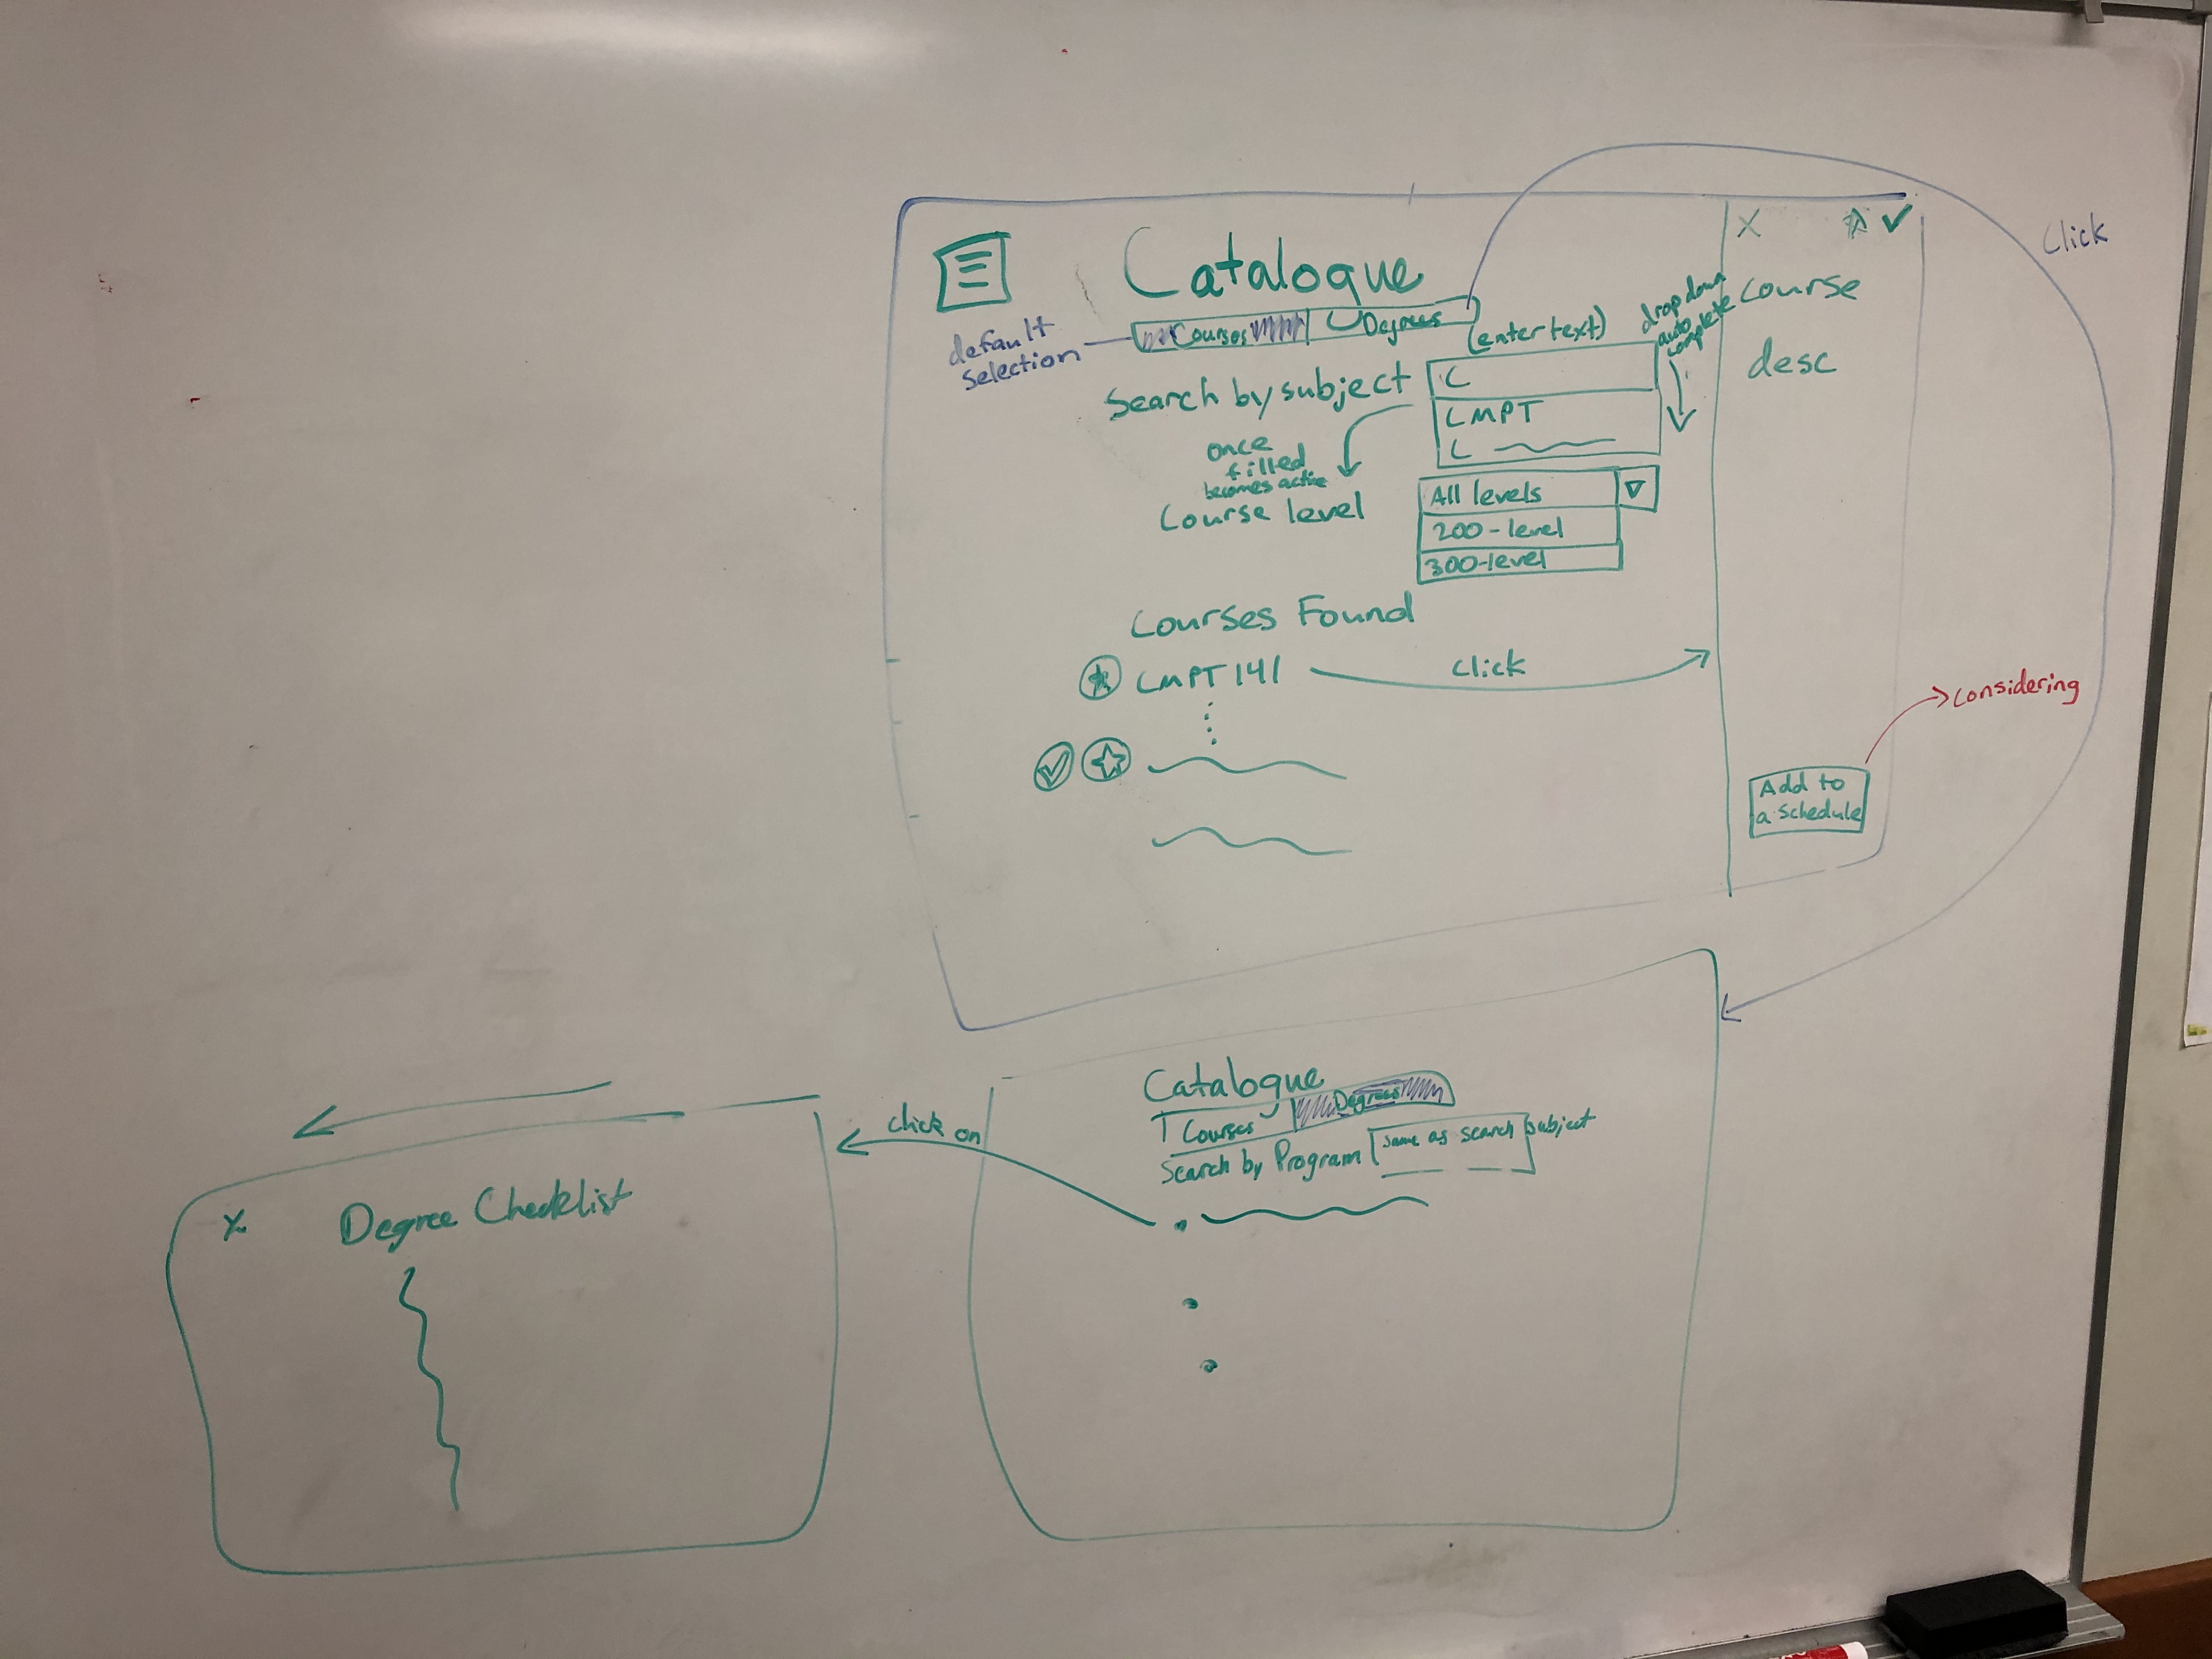 Catalogue
Courses
Degrees
default
selection
(enter text)
drop down
auto
complete
Search by subject
C
CMPT
C
once
filled
becomes active
Course level
All levels
200-level
300-level
Courses Found
CMPT 141
click
X
course
desc
Add to
a schedule
considering
Click
Catalogue
Courses
Degrees
Search by Program
same as search subject
click on
X
Degree Checklist